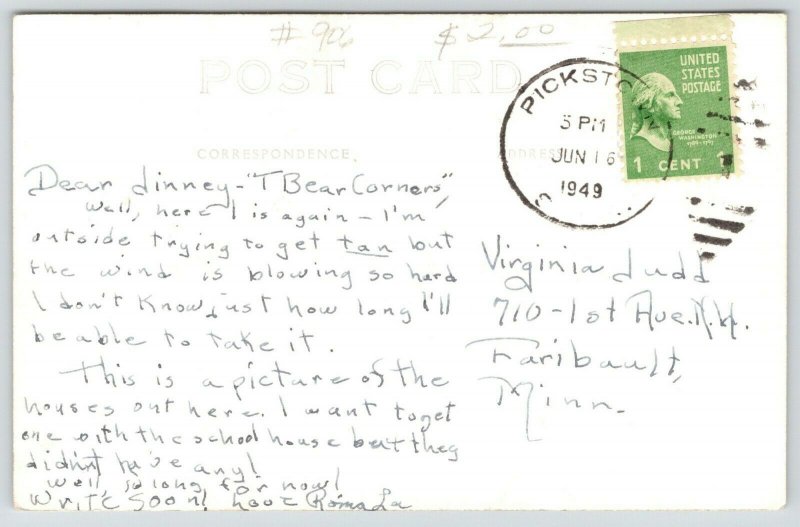 # 906 $2.00
POST CARD
CORRESPONDENCE
ADDRESS
PICKSTOWN
5 PM
JUN 16
1949
UNITED
STATES
POSTAGE
GEORGE
WASHINGTON
1789-1797
1 CENT 1
Dear Jinney - "T Bear Corners",
Well, here I is again - I'm
outside trying to get tan but
the wind is blowing so hard
I don't know just how long I'll
be able to take it.
This is a picture of the
houses out here. I want to get
one with the school house but they
didn't have any!
Well, so long for now!
Write soon!
Virginia Judd
710-1st Ave. N.W.
Faribault,
Minn.